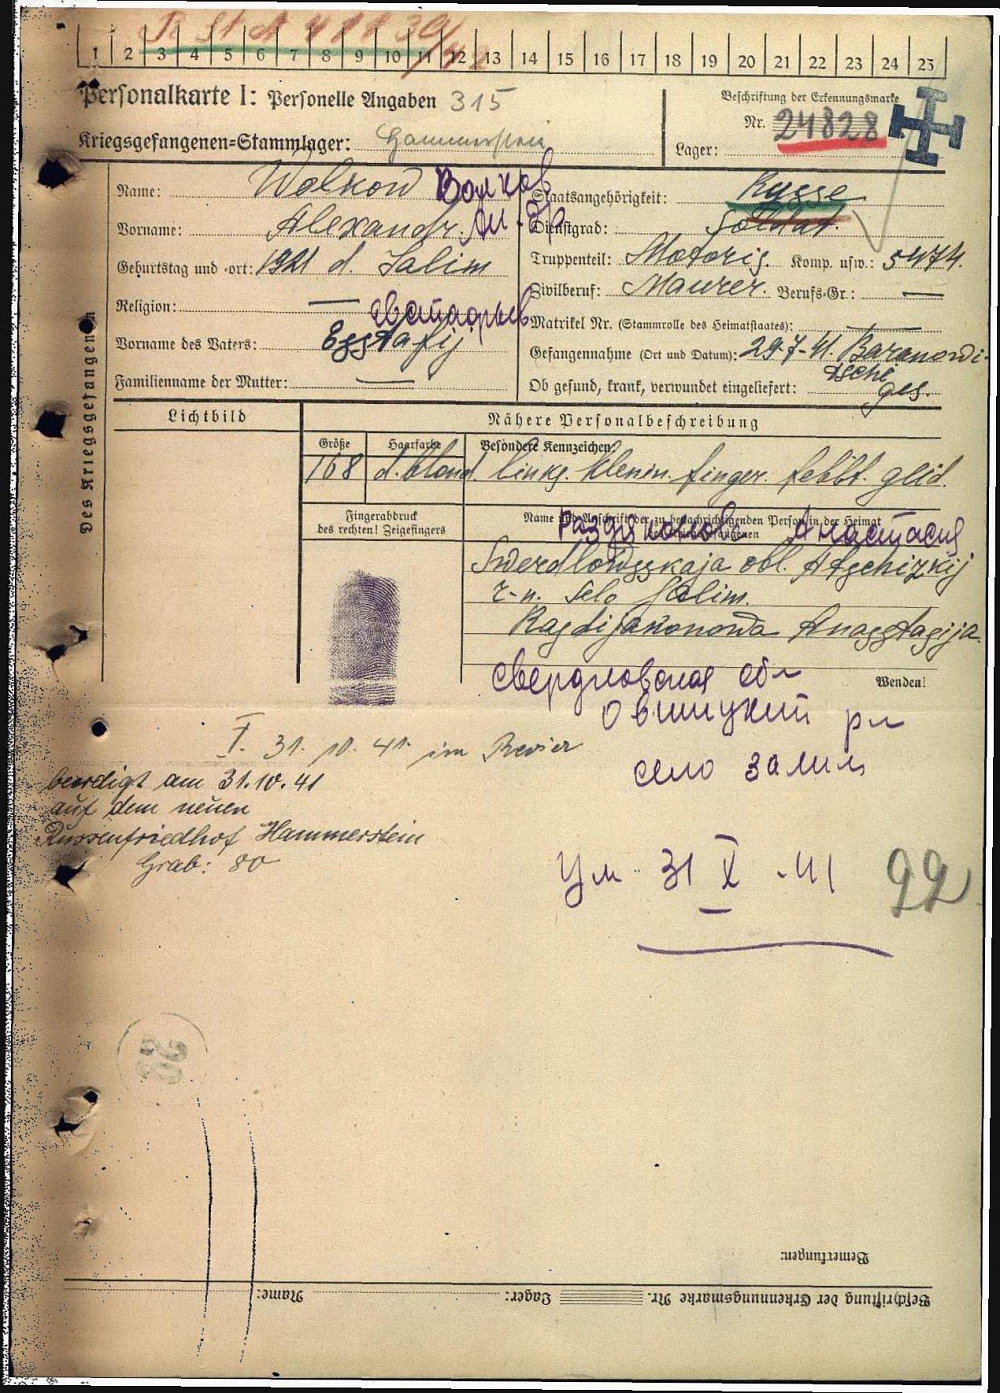 1 2 3 4 5 6 7 8 9 10 11 12 13 14 15 16 17 18 19 20 21 22 23 24 25
Personalkarte I: Personelle Angaben 315
Beschriftung der Erkennungsmarke
Nr. 24828
Kriegsgefangenen=Stammlager: Hammerstein
Lager:
Des Kriegsgefangenen
Name: Wolkow Волков
Vorname: Alexandr. Ал-др
Geburtstag und -ort: 1921 d. Salim
Religion: —
Евстафьев
Vorname des Vaters: Eggtafij
Familienname der Mutter: —
Staatsangehörigkeit: Rugge
Dienstgrad: Soldat.
Truppenteil: Motorig. Komp. usw.: 5474.
Zivilberuf: Maurer. Berufs-Gr.: —
Matrikel Nr. (Stammrolle des Heimatstaates): —
Gefangennahme (Ort und Datum): 29-7-41. Baranowi-
tschi
Ob gesund, krank, verwundet eingeliefert: ges.
Lichtbild
Nähere Personalbeschreibung
Größe Haarfarbe Besondere Kennzeichen:
168 d. blond. links. klenin. finger. fehbt. glid.
Fingerabdruck
des rechten! Zeigefingers
Name und Anschrift der zu benachrichtigenden Person in der Heimat
des Kriegsgefangenen
Раздьяконова Анастасия
Swerdlowggkaja obl. Atschizkij
r-n. selo Salim.
Ragdijakonowa Anaggtagija.
Wenden!
Свердловская обл
Овшицкий рн
село Залим
I. 31. 10. 41. im Revier
beerdigt am 31.10.41
auf dem neuen
Russenfriedhof Hammerstein
Grab: 80
Ум. 31 X -41 99
Bemerkungen:
Beschriftung der Erkennungsmarke Nr. Lager: Name: